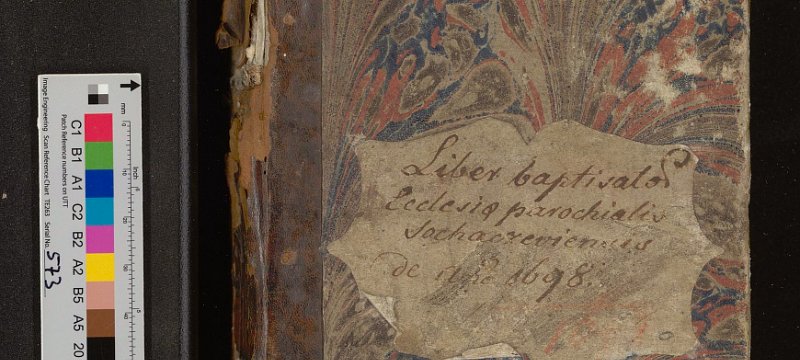 Liber baptisator
Ecclesiæ parochialis
Sochaczeviensis
de Anno 1698.
mm
Inch
C1 B1 A1 C2 B2 A2 B5 A5 20
10
20
30
40
Image Engineering Scan Reference Chart TE263 Serial No. 573
Patch Reference numbers on UTT